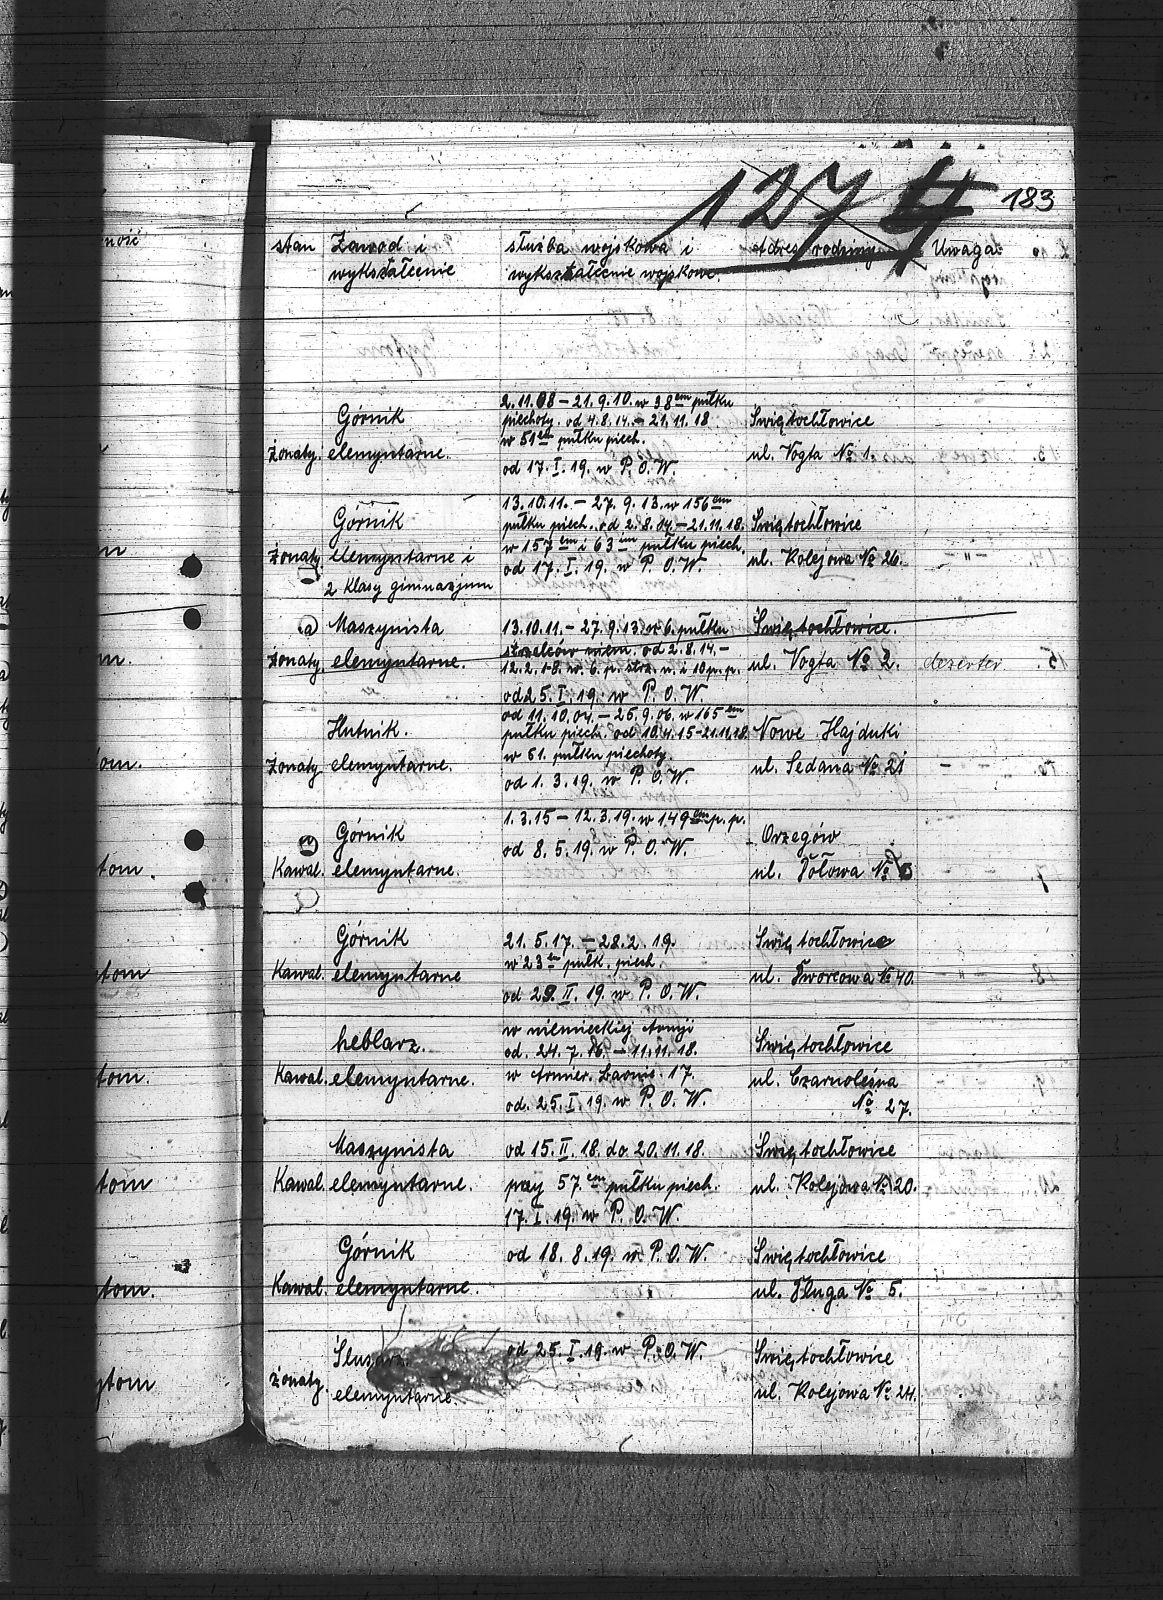 1274
183
stan Zawod i służba wojskowa i adres rodziny Uwaga
wykształcenie wykształcenie wojskowe.
2.11.08 – 21.9.10. w 38em pułku
Górnik piechoty. od 4.8.14. – 21.11.18 Świętochłowice
w 51em pułku piech.
Żonaty. elemyntarne. od 17.I.19. w P.O.W. ul. Vogta № 1.
13.10.11. – 27.9.13. w 156em
Górnik pułku piech. od 2.8.14. – 21.11.18. Świętochłowice
Żonaty elemyntarne i w 157em i 63im pułku piech. ul. Kolejowa № 26.
2 klasy gimnazjum od 17.I.19. w P.O.W.
Maszynista 13.10.11. – 27.9.13 w 6. pułku Świętochłowice.
strzelców niem. od 2.8.14. –
Żonaty. elemyntarne. 12.2.18. w. 6. p. strz. n. i 10 p.p. ul. Vogta № 2. dezerter
od 25.I.19. w P.O.W.
od 11.10.04. – 25.9.06. w 165em
Hutnik. pułku piech. od 10.4.15 – 21.11.18. Nowe Hajduki
w 61. pułku piechoty.
Żonaty elemyntarne. od 1.3.19. w P.O.W. ul. Sedana № 21
1.3.15 – 12.3.19. w 149em p.p.
Górnik od 8.5.19. w P.O.W. Orzegów
Kawal. elemyntarne. ul. Polowa №
Górnik 21.5.17. – 28.2.19. Świętochłowice
w 23em pułk. piech.
Kawal. elemyntarne od 29.II.19. w P.O.W. ul. Dworcowa № 40.
w niemieckiej Armji
heblarz. od. 24.7.16. – 11.11.18. Świętochłowice
Kawal. elemyntarne. w Armier. Baonie. 17. ul. Czarnoleśna
od. 25.I.19. w P.O.W. № 27.
Maszynista od 15.II.18. do 20.11.18. Świętochłowice
Kawal. elemyntarne. przy 57em pułku piech. ul. Kolejowa № 20.
17.I.19. w P.O.W.
Górnik od 18.8.19. w P.O.W. Świętochłowice
Kawal. elemyntarne. ul. Długa № 5.
Ślusarz. od 25.I.19. w P.O.W. Świętochłowice
Żonaty. elemyntarne. ul. Kolejowa № 24.